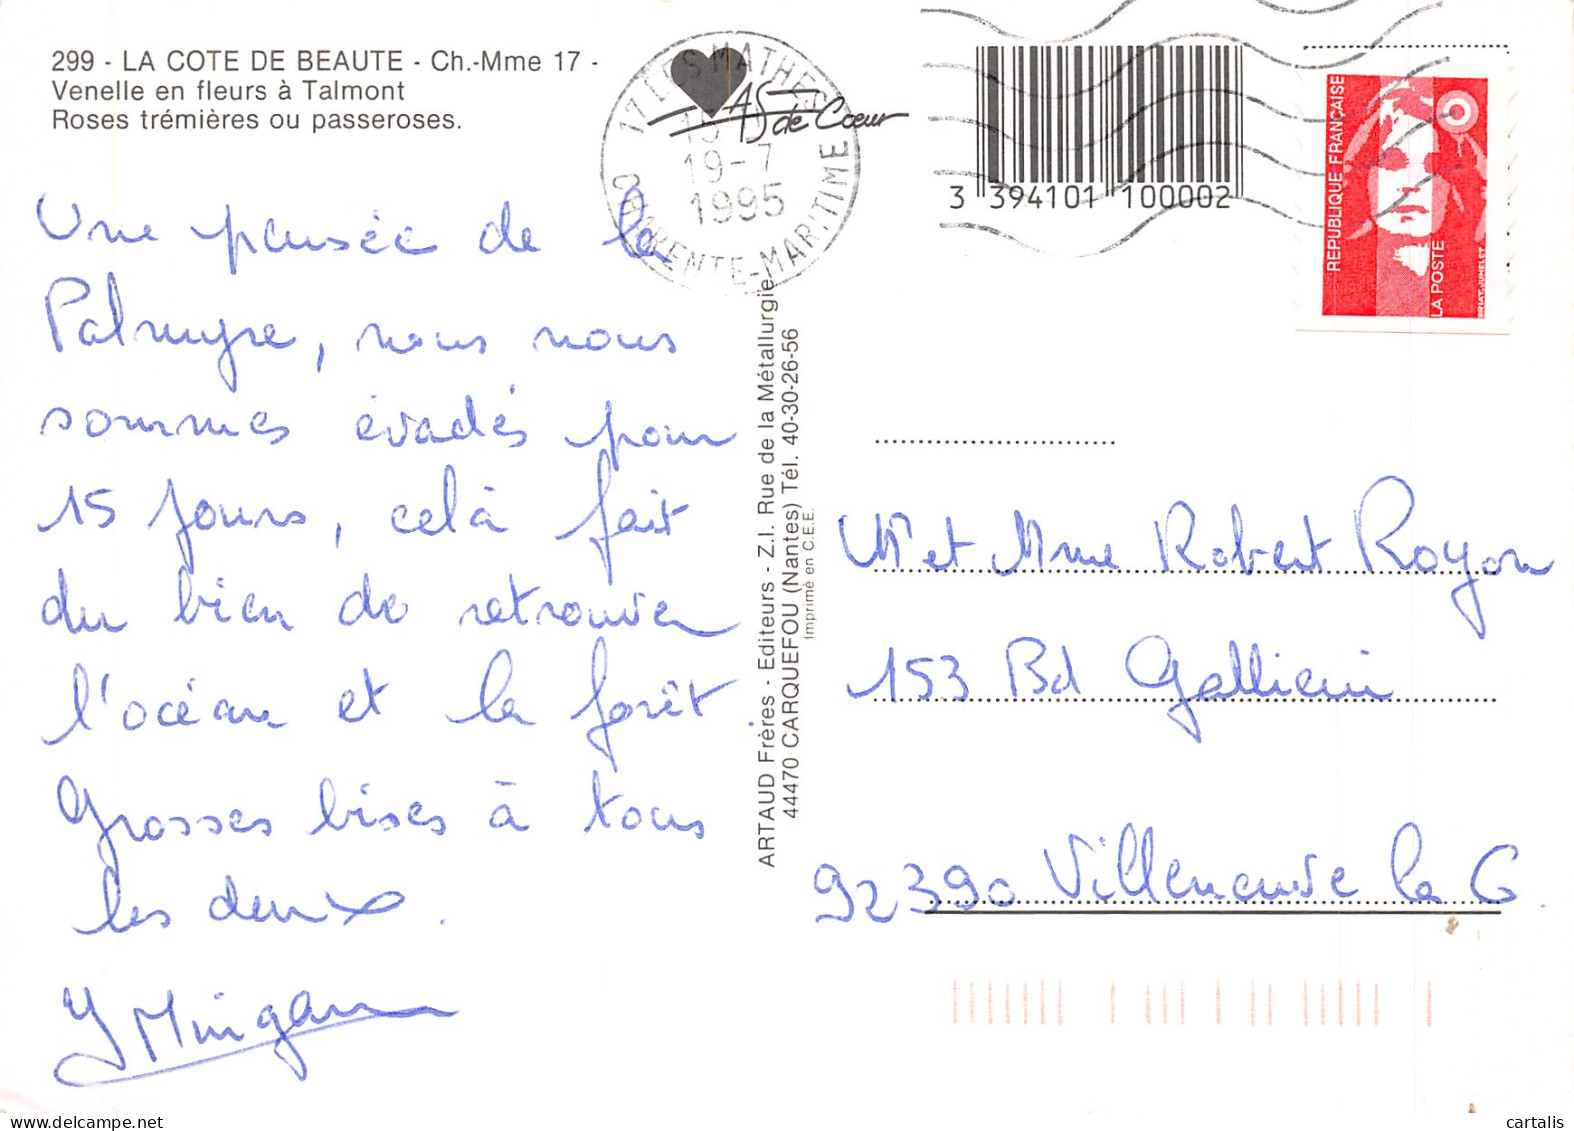 299 - LA COTE DE BEAUTE - Ch.-Mme 17 -
Venelle en fleurs à Talmont
Roses trémières ou passeroses.
17 LES MATHES
19-7
1995
CHARENTE-MARITIME
AS de Coeur
3 394101 100002
REPUBLIQUE FRANÇAISE
LA POSTE
Une pensée de la
Palmyre, nous nous
sommes évadés pour
15 jours, celà fait
du bien de retrouver
l'océan et la forêt
Grosses bises à tous
les deux.
Y Mingam
ARTAUD Frères - Editeurs - Z.I. Rue de la Métallurgie
44470 CARQUEFOU (Nantes) Tél. 40-30-26-56
Imprimé en C.E.E.
Mr et Mme Robert Royon
153 Bd Gallieni
92390 Villeneuve la G.
cartalis
www.delcampe.net